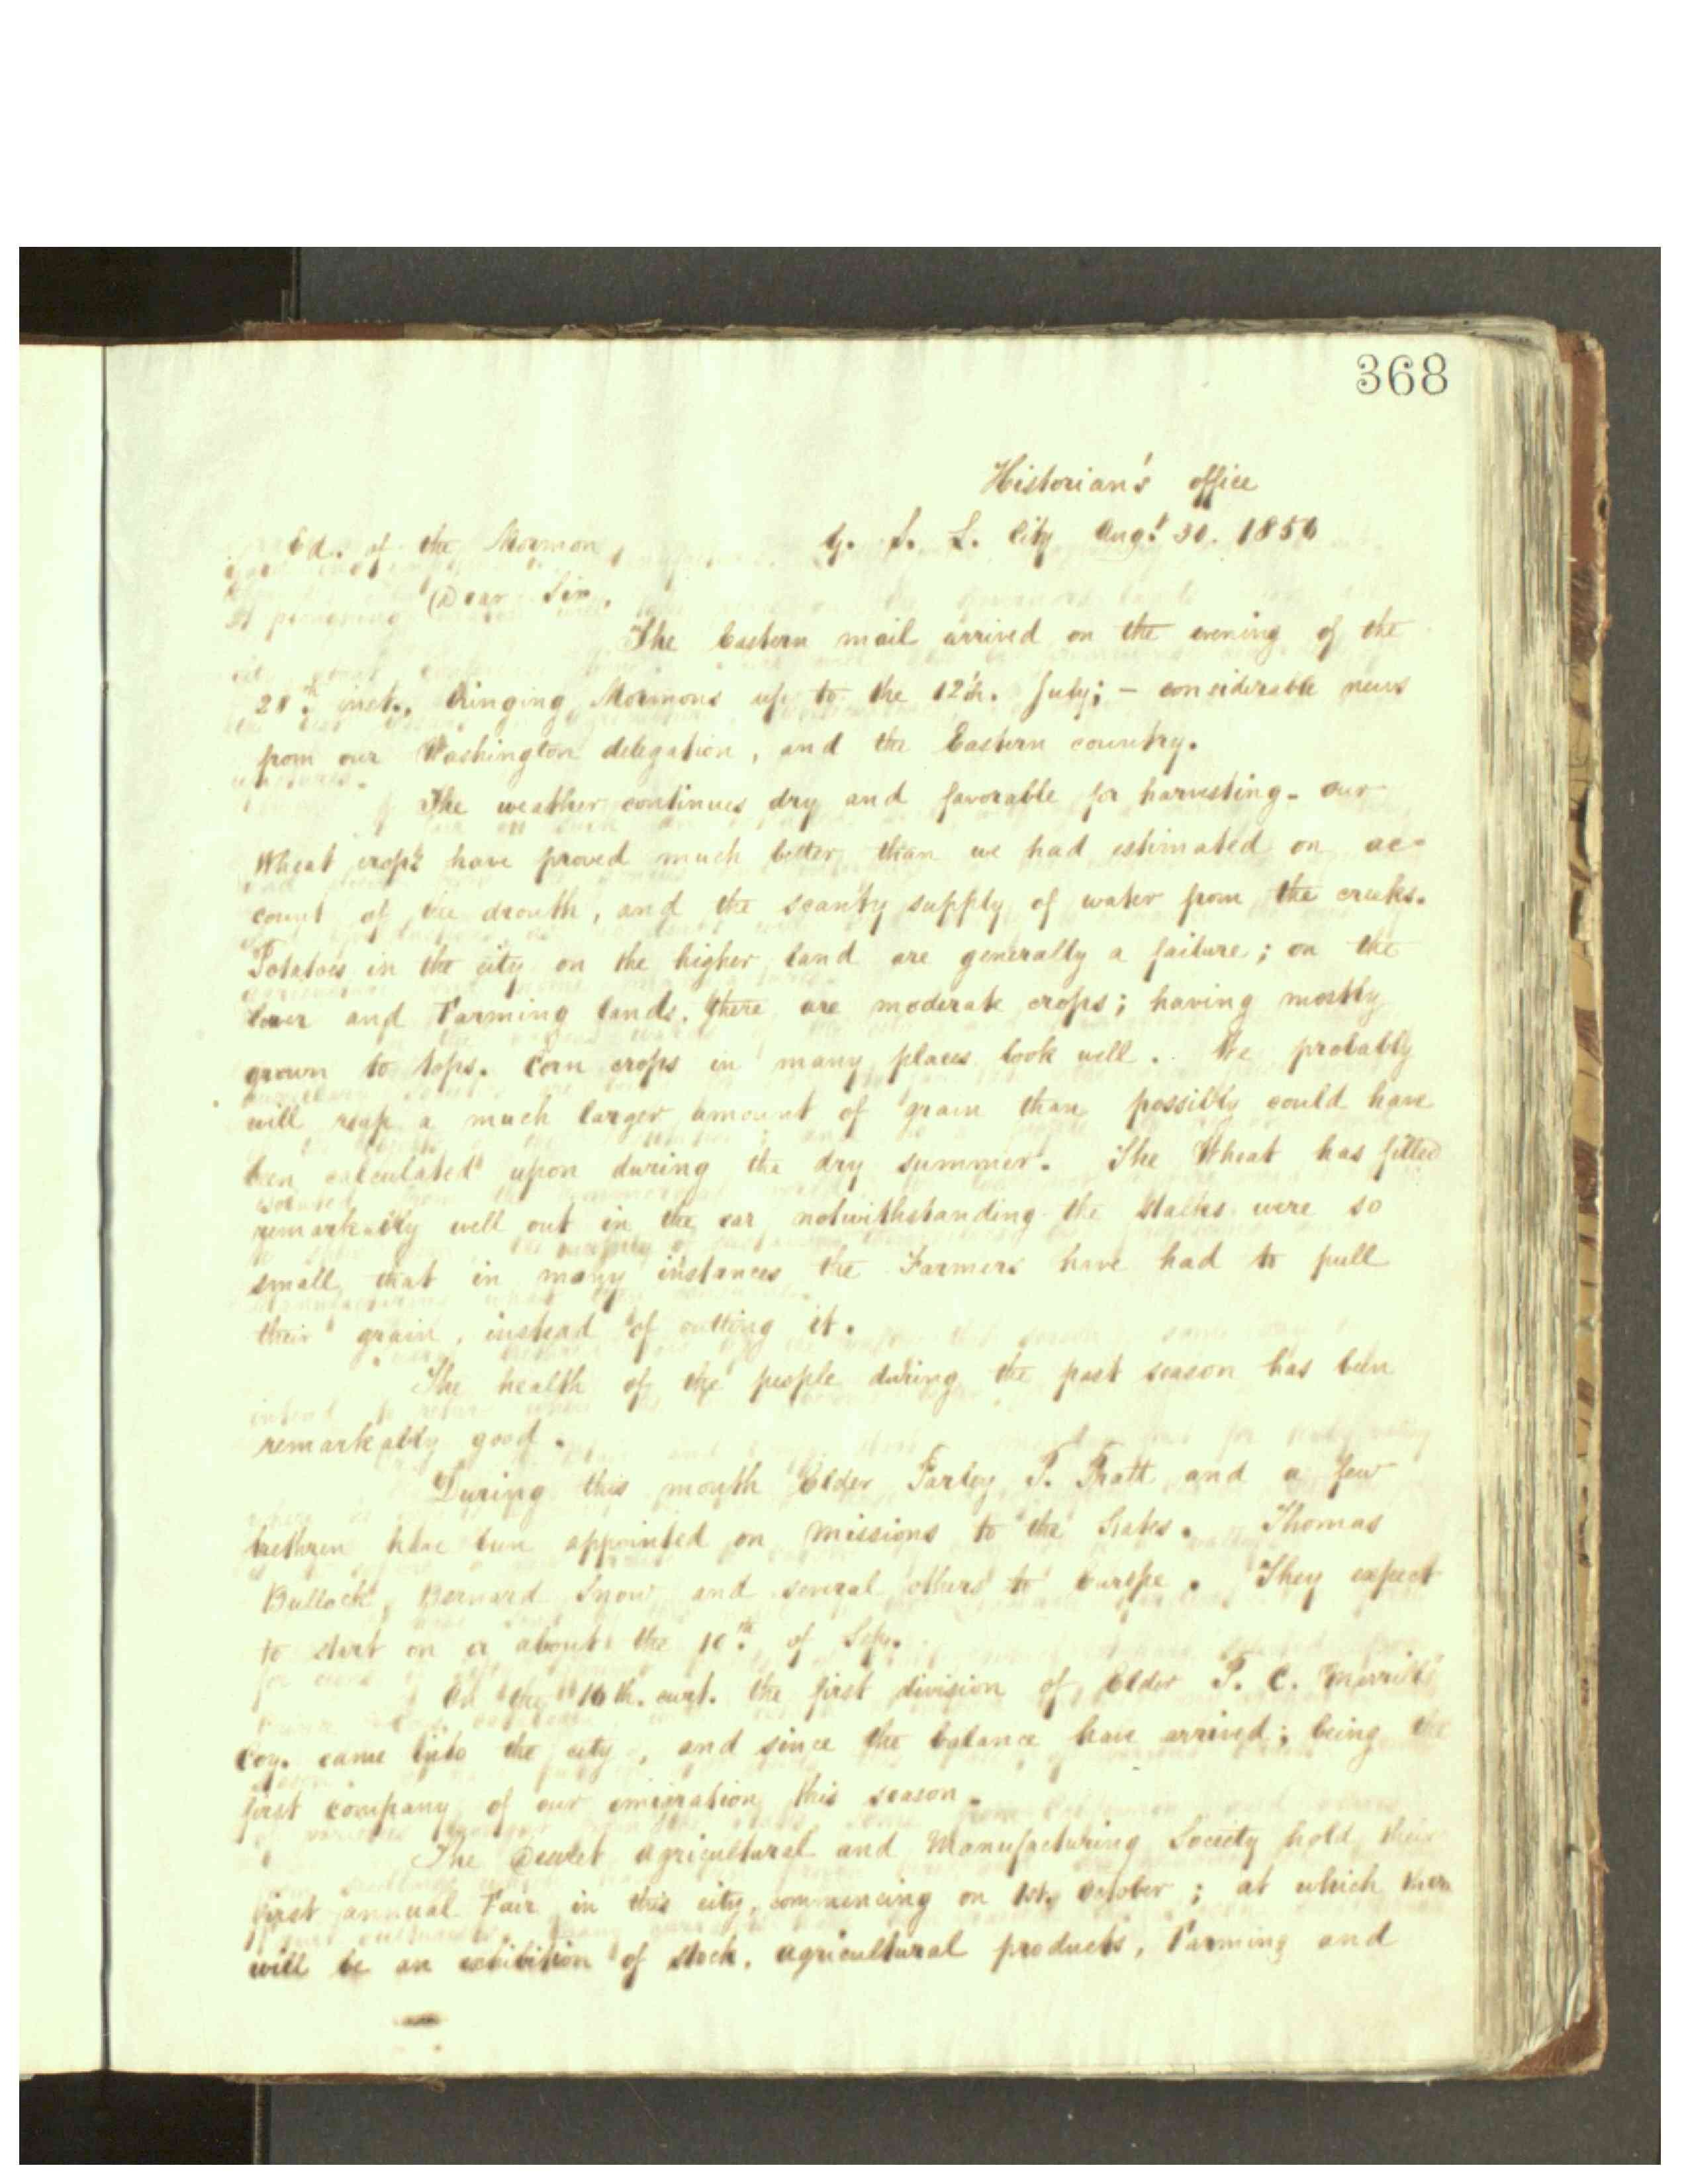 368
Historian's office
Ed. of the Mormon, G. S. L. City Augt. 30. 1856
Dear Sir,
The Eastern mail arrived on the evening of the
28th. inst., bringing Mormons up to the 12th. July; - considerable news
from our Washington delegation, and the Eastern country.
The weather continues dry and favorable for harvesting - our
Wheat crops have proved much better than we had estimated on ac-
count of the drouth, and the scanty supply of water from the creeks.
Potatoes in the city on the higher land are generally a failure; on the
lower and Farming lands, there are moderate crops; having mostly
grown to tops. Corn crops in many places look well. We probably
will reap a much larger amount of grain than possibly could have
been calculated upon during the dry summer. The Wheat has filled
remarkably well out in the ear notwithstanding the stalks were so
small, that in many instances the Farmers have had to pull
their grain, instead of cutting it.
The health of the people during the past season has been
remarkably good.
During this month Elder Parley P. Pratt and a few
brethren have been appointed on missions to the States. Thomas
Bullock, Bernard Snow and several others to Europe. They expect
to start on or about the 10th. of Sep.
On the 16th. curt. the first division of Elder P. C. Merrill's
Coy. came into the city, and since the balance have arrived; being the
first company of our emigration this season.
The Deseret Agricultural and Manufacturing Society hold their
first annual Fair in this city, commencing on 1st. October; at which there
will be an exhibition of stock, agricultural products, Farming and